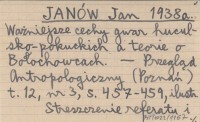 JANÓW Jan 1938a.
Ważniejsze cechy gwar hucul-
sko-pokuckich a teorie o
Bołochowcach. — Przegląd
Antropologiczny (Poznań)
t. 12, nr 3, s. 457-459, ilustr.
Streszczenie referatu i